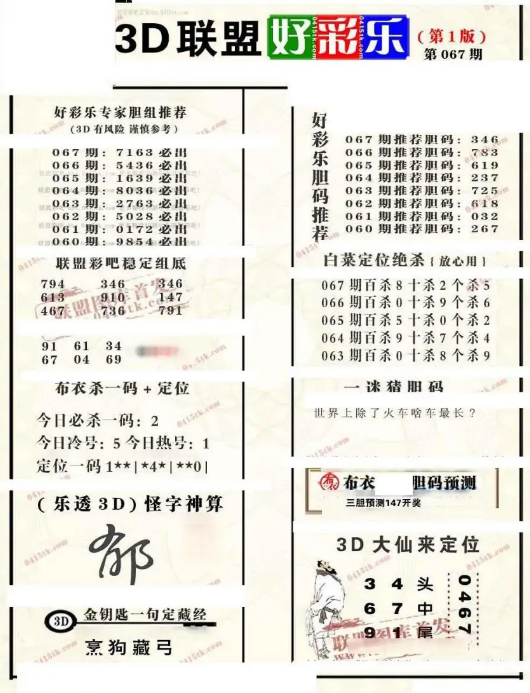 3D联盟 好彩乐 (第1版)
第067期
好彩乐专家胆组推荐
(3D有风险 谨慎参考)
067期：7163必出
066期：5436必出
065期：1639必出
064期：8036必出
063期：2763必出
062期：5028必出
061期：0172必出
060期：9854必出
联盟彩吧稳定组底
794 346 346
613 910 147
467 736 791
91 61 34
67 04 69
布衣杀一码+定位
今日必杀一码：2
今日冷号：5 今日热号：1
定位一码 1**|*4*|**0|
(乐透3D)怪字神算
郁
3D 金钥匙一句定藏经
烹狗藏弓
好彩乐胆码推荐
067期推荐胆码：346
066期推荐胆码：783
065期推荐胆码：619
064期推荐胆码：237
063期推荐胆码：725
062期推荐胆码：618
061期推荐胆码：032
060期推荐胆码：267
白菜定位绝杀{放心用}
067期百杀8十杀2个杀5
066期百杀0十杀9个杀6
065期百杀5十杀0个杀2
064期百杀9十杀7个杀4
063期百杀0十杀8个杀9
一谜猜胆码
世界上除了火车啥车最长？
布衣 胆码预测
三胆预测147开奖
3D大仙来定位
3 4 头
6 7 中
9 1 尾
0467
联盟图库首发
0415tk.com